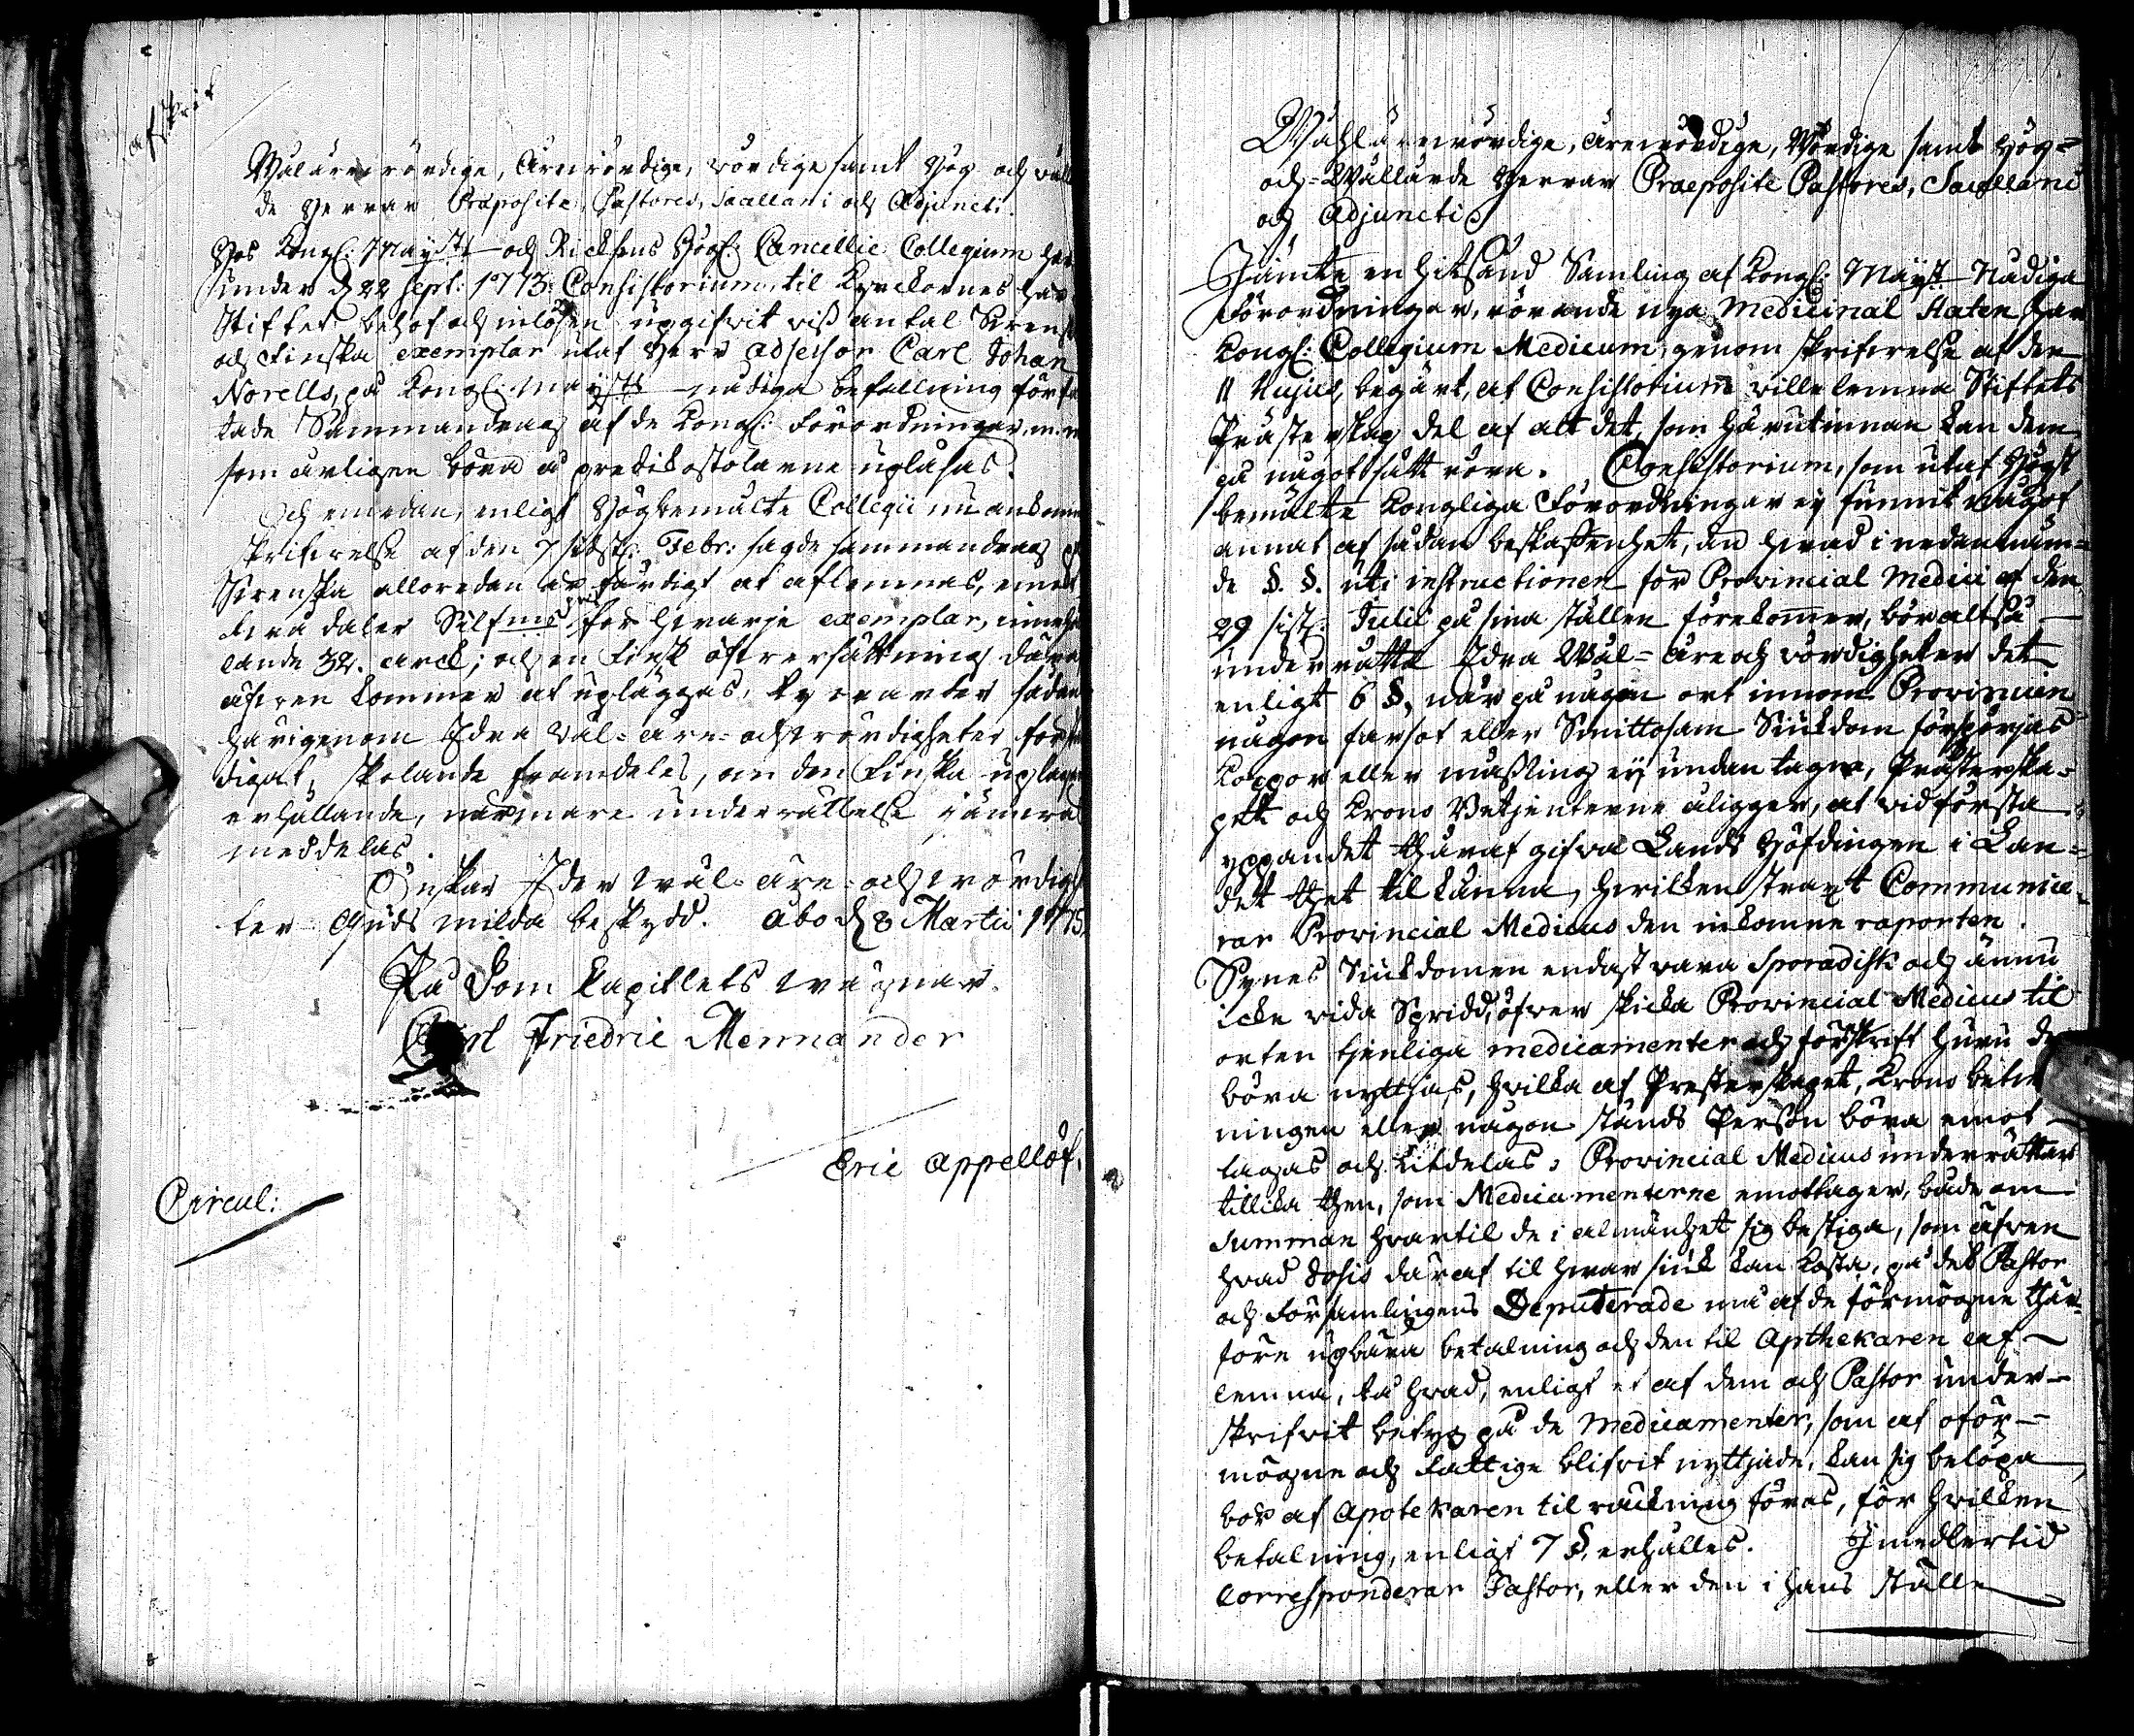 afskrift
Wälärewördige, Ärewördige, wördige samt Hög och wäl
de Herrar Præposite, Pastores, Sacellani och Adjuncti.
Hos Kongl: Mayst:s och Ricksens Högl: Cancellie Collegium har
under d 22 Sept: 1773. Consistorium, til Kyrckornes här
Stiftet behof och inlösen upgifvit wisst antal Svensk
och Finska exemplar utaf Herr Adsessor Carl Johan
Norells, på Kongl: Mayst:s nådiga befallning förfa
tade Sammandrag af de Kongl: Förordningar, m. m
som årligen böra å predikostolarne upläsas.
Och emedan, enligt Högbemälte Collegii nu ankomne
skrifvelse af den 7 sidstl: Febr: sagde sammandrag
Svenska alloredan är färdigt at aflemnas, emot
fyra daler Silf:mt för hvarje exemplar, innehål
lande 32. arck; och en Finsk öfversättning däraf
äfven kommer at upläggas, ty warder sådant
härigenom Edra Wäl- äre- och wördigheter forstän
digat, skolande framdeles, om den Finska uplagans
erhållande, närmare underrättelse jämväl
meddelas.
Önskar Eder wäl- äre- och wördighe
ter Guds milda beskydd. Åbo d 8 Martii 1775.
På Dom Kapitlets wägnar.
Carl Friedric Mennander
Eric Appellöf.
Circul:
Wählärewördige, ärewördige, Wördige samt Hög-
och Wällärde Herrar Præposite Pastores, Sacellani
och Adjuncti
Jämte en hitsänd Samling af Kongl: Mayst:s Nådiga
Förordningar, rörande nya Medicinal Staten har
Kongl: Collegium Medicum, genom skrifvelse af den
11 hujus, begärt, at Consistorium wille lemna Stiftets
Prästerskap del af alt det, som härutinnan kan dem
på något sätt röra. Consistorium, som utaf Högst
bemälte Kongliga Förordningar ej funnit något
annat af sådan beskaffenhet, än hvad i nedannäm-
de §. §. uti instructionen för Provincial Medici af den
29 sistl: Julii på sina ställen förekommer, bör altså
underrätta Edra Wäl- äre och wördigheter det
enligt 6 §, när på någon ort innom Provincien
någon farsot eller Smittosam Siukdom förspörjas
Koppor eller mässling ej undantagne, Prästerska-
pet och Krono Betjenterne åligger, at vid första
yppandet thäraf gifva Lands Höfdingen i Län-
det thet tilkänna, hvilken straxt Communice-
rar Provincial Medicus den inkomne raporten.
Synes Siukdomen endast vara Sporadisk och ännu
icke vida Spridd, öfver skicka Provincial Medicus til
orten tjenliga medicamenter och förskrift huru de
böra nyttjas, hvilka af Presterskapet, Krono betie
ningen eller någon stånds Person böra emot-
tagas och utdelas. Provincial Medicus underrättar
tillika then, som Medicamenterne emottager, både om
Summan hvartil de i almänhet sig bestiga, som äfven
hvad dosis däraf til hvar siuk kan kosta, på det Pastor
och Församlingens Deputerade må af de förmögne thär-
före upbära betalning och den til Apthekaren af-
lemna, tå hvad, enligt et af dem och Pastor under-
skrifvit betyg på de Medicamenter, som af oför-
mögne och Fattige blifvit nyttjade, kan sig belöpa
bör af Apotekaren til räckning föras, för hvilken
betalning, enligt 7 §, erhålles. Imedlertid
Corresponderar Pastor, eller den i hans ställe